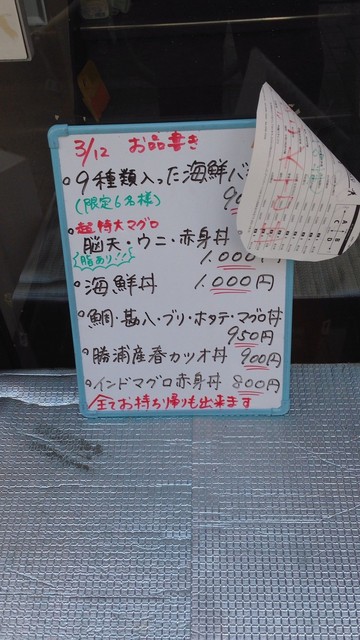 3/12 お品書き
。9種類入った海鮮バ
(限定6名様) 90
。超特大マグロ
脳天・ウニ・赤身丼
脂あり!! 1.000円
。海鮮丼 1.000円
。鯛・勘八・ブリ・ホタテ・マグロ丼
950円
。勝浦産春カツオ丼 900円
。インドマグロ赤身丼 800円
全てお持ち帰りも出来ます